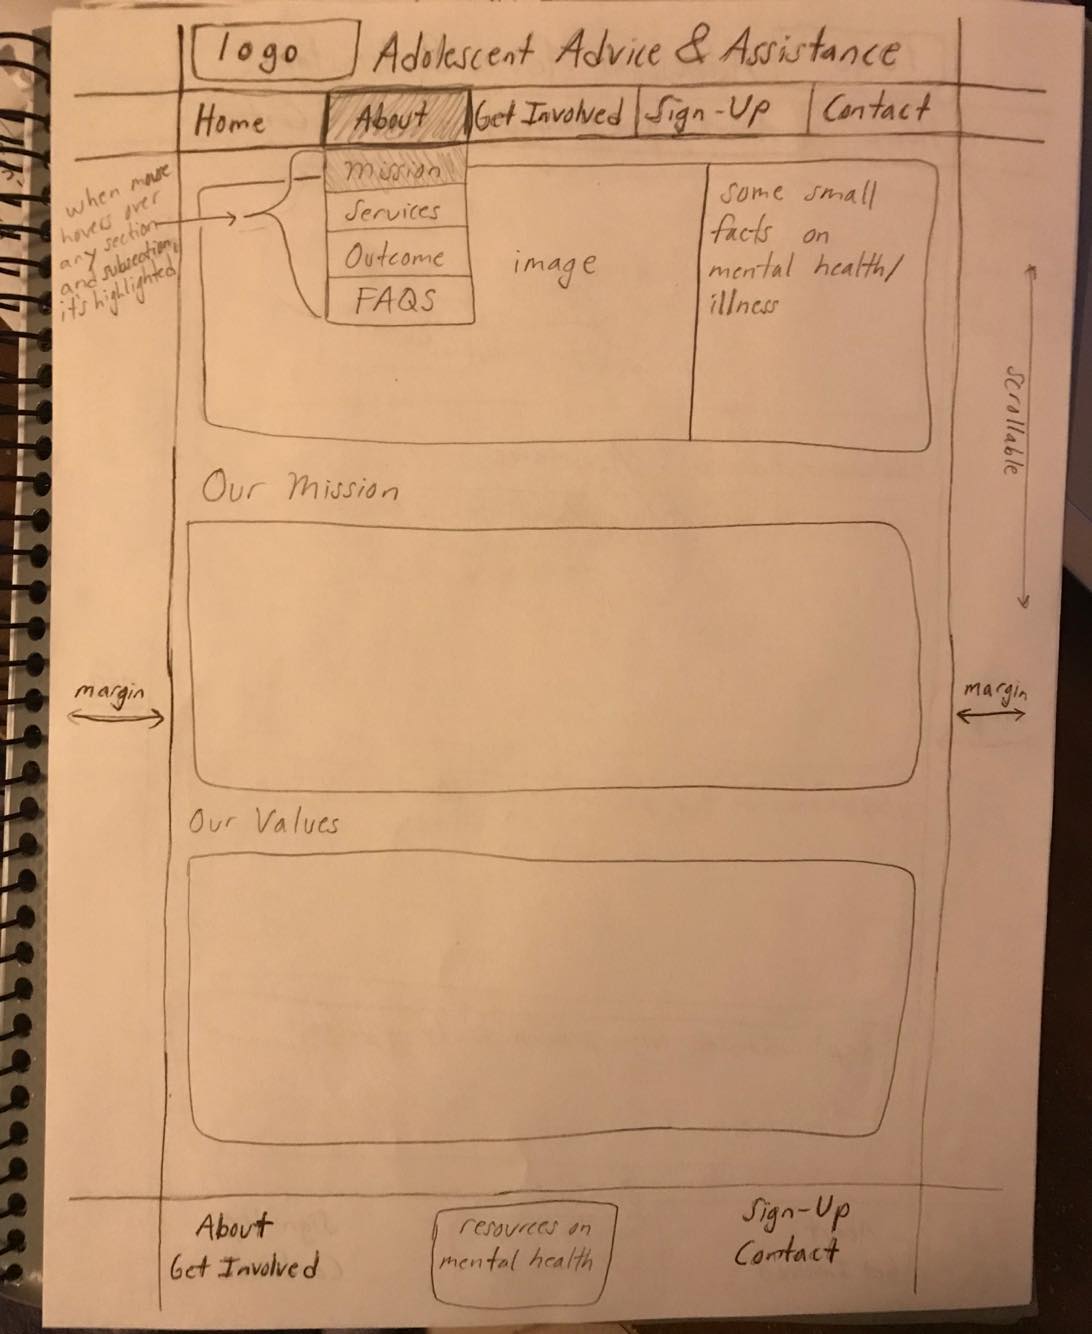 logo
Adolescent Advice & Assistance
Home
About
Get Involved
Sign-Up
Contact
when mouse
hovers over
any section
and subsection,
it's highlighted
Mission
Services
Outcome
FAQS
image
some small
facts on
mental health/
illness
scrollable
Our Mission
margin
margin
Our Values
About
Get Involved
resources on
mental health
Sign-Up
Contact